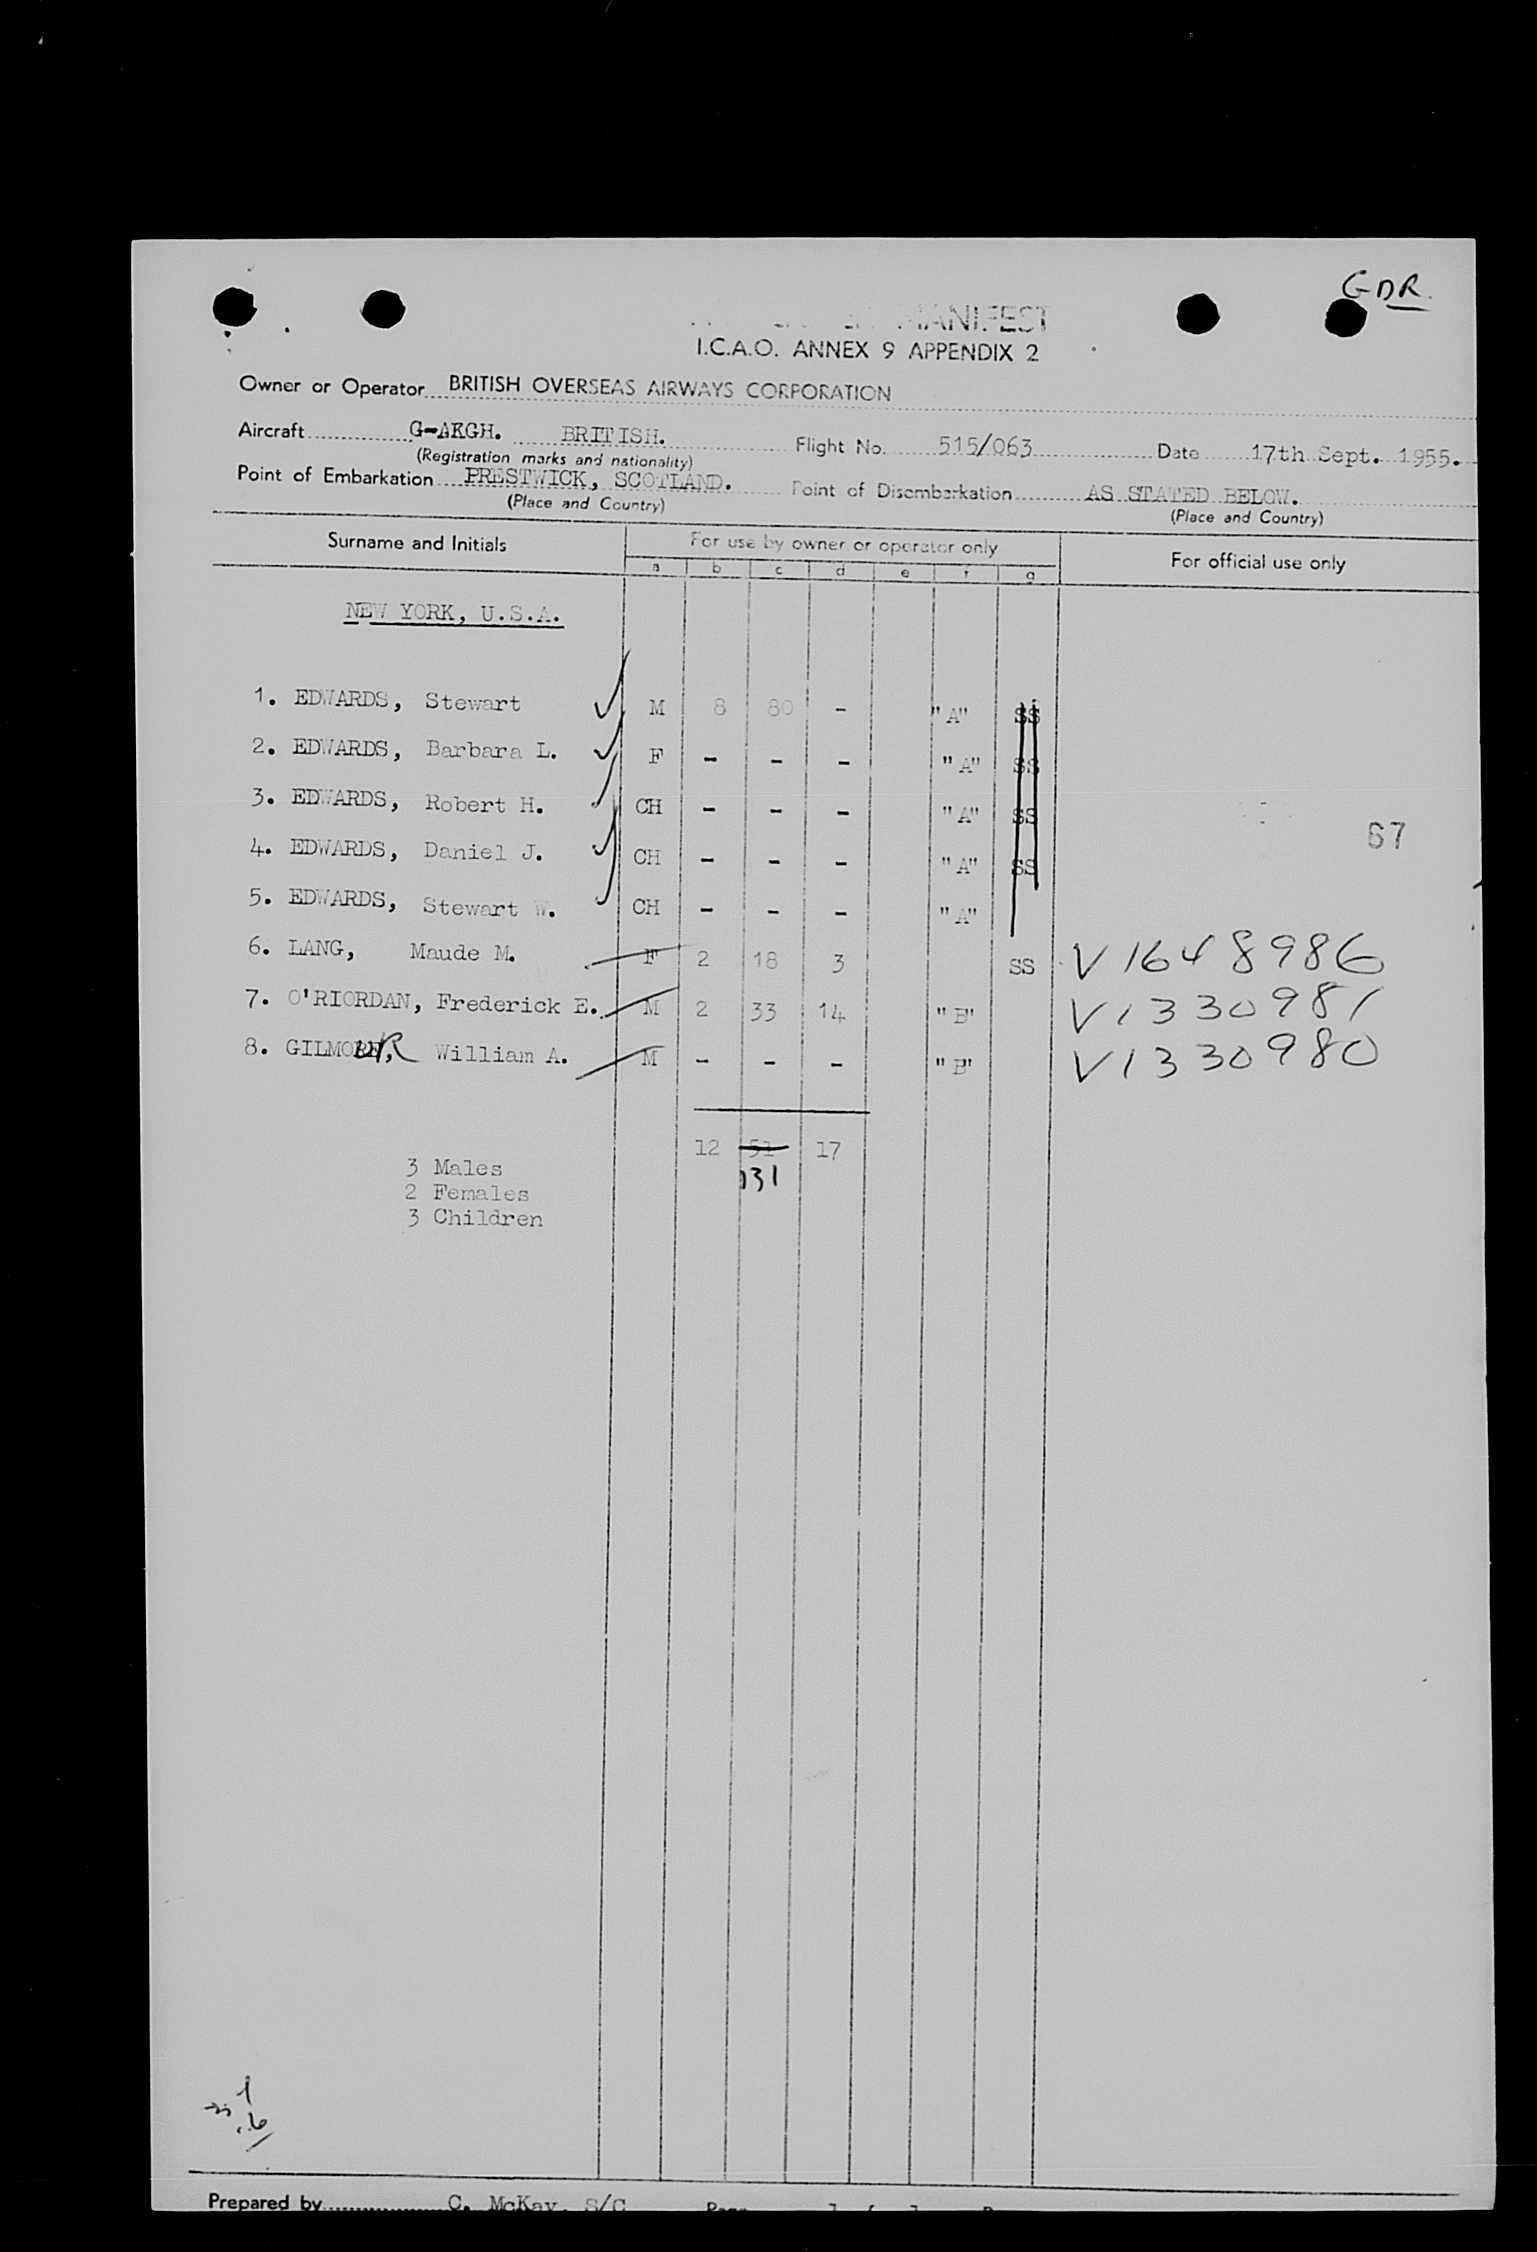 GDR.
MANIFEST
I.C.A.O. ANNEX 9 APPENDIX 2
Owner or Operator BRITISH OVERSEAS AIRWAYS CORPORATION
Aircraft G-AKGH. BRITISH. Flight No. 515/063 Date 17th Sept. 1955.
(Registration marks and nationality)
Point of Embarkation PRESTWICK, SCOTLAND. Point of Disembarkation AS STATED BELOW.
(Place and Country) (Place and Country)
Surname and Initials For use by owner or operator only For official use only
a b c d e f g
NEW YORK, U.S.A.
1. EDWARDS, Stewart M 8 80 - "A" SS
2. EDWARDS, Barbara L. F - - - "A" SS
3. EDWARDS, Robert H. CH - - - "A" SS
67
4. EDWARDS, Daniel J. CH - - - "A" SS
5. EDWARDS, Stewart W. CH - - - "A"
6. LANG, Maude M. F 2 18 3 SS V1648986
7. O'RIORDAN, Frederick E. M 2 33 14 "B" V1330981
8. GILMOUR, William A. M - - - "B" V1330980
12 51 17
131
3 Males
2 Females
3 Children
Prepared by C. McKay. S/C Page 1 of 1